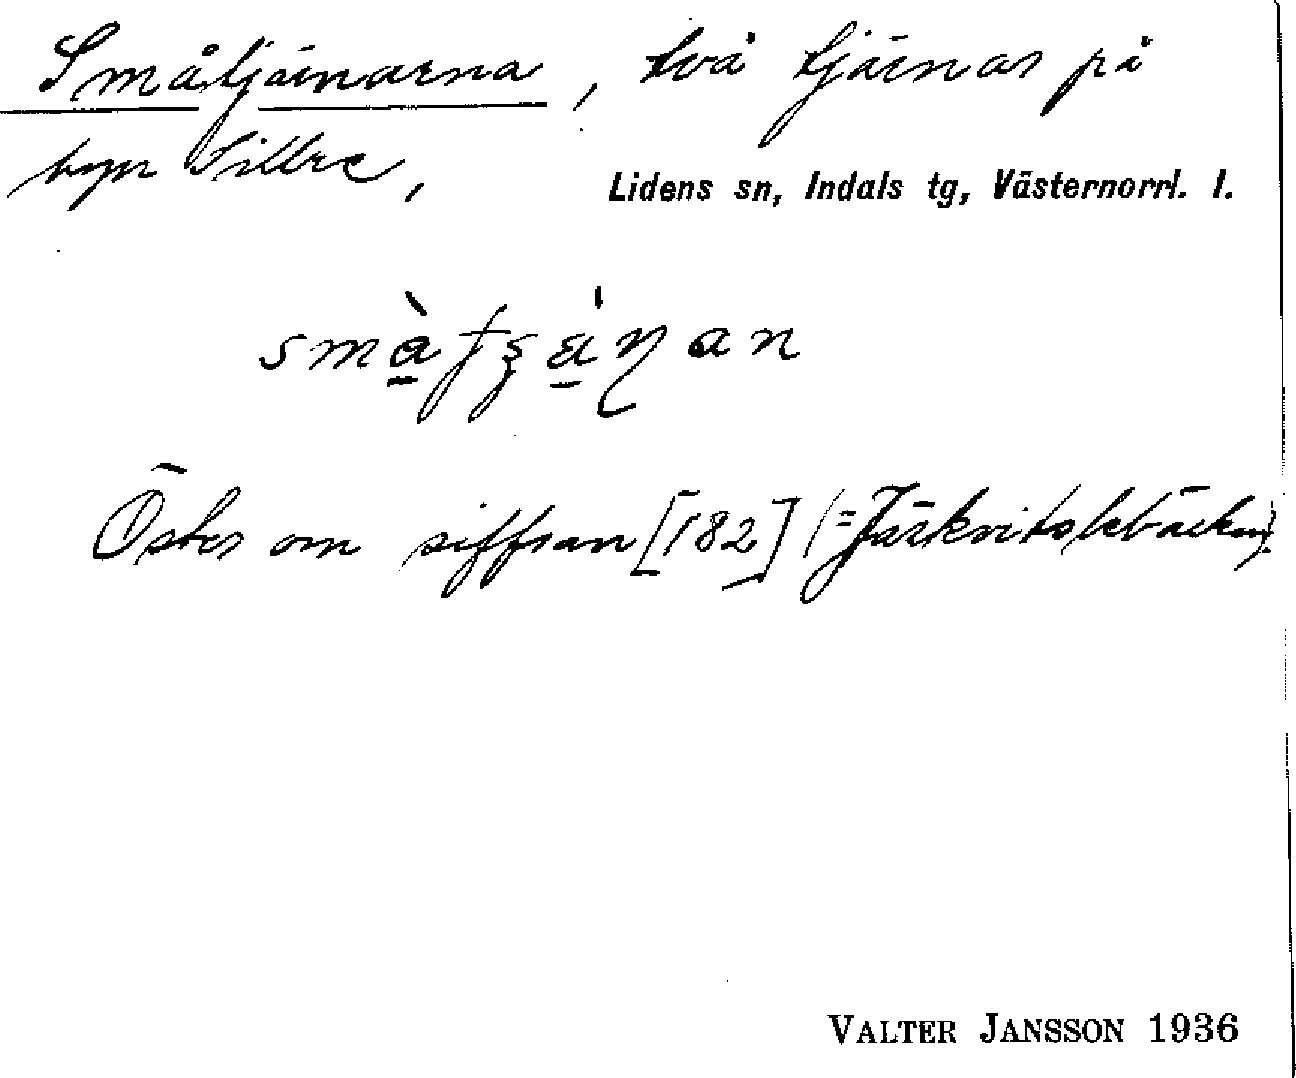 Småtjärnarna, två tjärnar på
byn Sillre,
Lidens sn, Indals tg, Västernorrl. l.
Öster om siffran [182]
VALTER JANSSON 1936